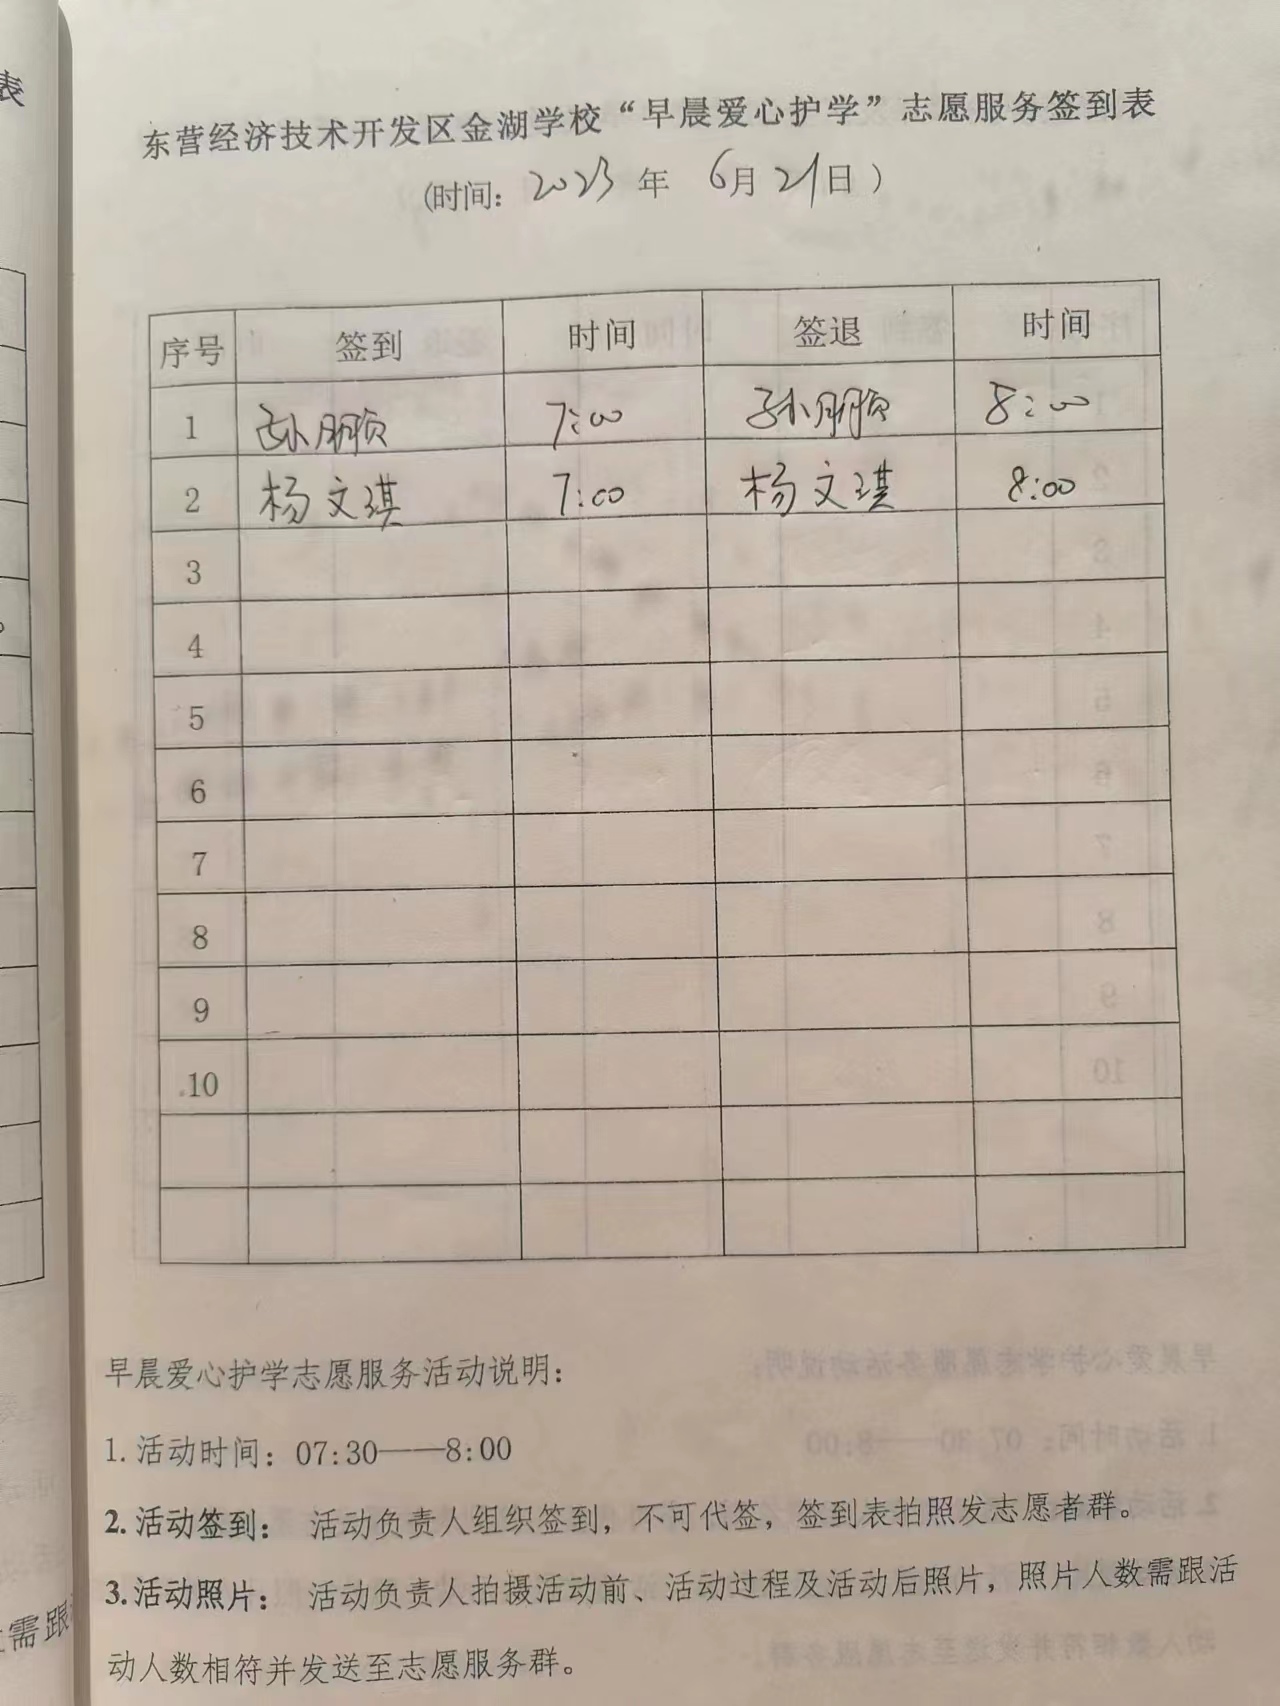 表
东营经济技术开发区金湖学校“早晨爱心护学”志愿服务签到表
(时间: 2023 年 6月21日 )
序号 签到 时间 签退 时间
1 孙鹏 7:00 孙鹏 8:00
2 杨文琪 7:00 杨文琪 8:00
3
4
5
6
7
8
9
10
早晨爱心护学志愿服务活动说明:
1. 活动时间: 07:30——8:00
2. 活动签到: 活动负责人组织签到, 不可代签, 签到表拍照发志愿者群。
3. 活动照片: 活动负责人拍摄活动前、活动过程及活动后照片, 照片人数需跟活
需跟
动人数相符并发送至志愿服务群。